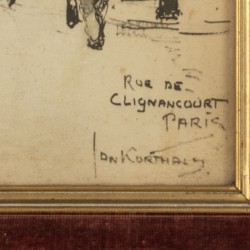 RUE DE
CLIGNANCOURT
PARIS
Jan Korthals